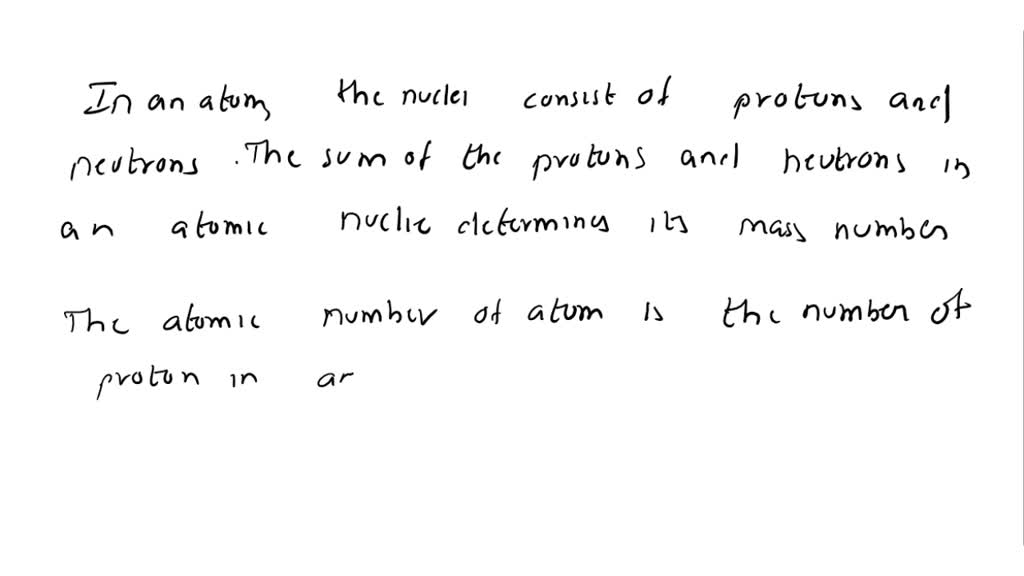 In an atom, the nuclei consist of protons and
neutrons. The sum of the protons and neutrons in
an atomic nuclie determines its mass number
The atomic number of atom is the number of
proton in ar